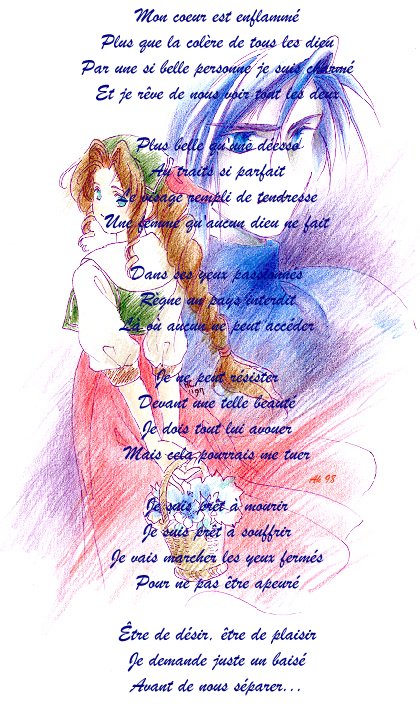 Mon coeur est enflammé
Plus que la colère de tous les dieu
Par une si belle personne je suis charmé
Et je rêve de nous voir tout les deux
Plus belle qu'une déesse
Au traits si parfait
Le visage rempli de tendresse
Une femme qu'aucun dieu ne fait
Dans ses yeux passionnés
Règne un pays interdit
Là où aucun ne peut accéder
Je ne peut résister
Devant une telle beauté
Je dois tout lui avouer
Mais cela pourrais me tuer
Ak 98
Je suis prêt à mourir
Je suis prêt à souffrir
Je vais marcher les yeux fermés
Pour ne pas être apeuré
Être de désir, être de plaisir
Je demande juste un baisé
Avant de nous séparer...